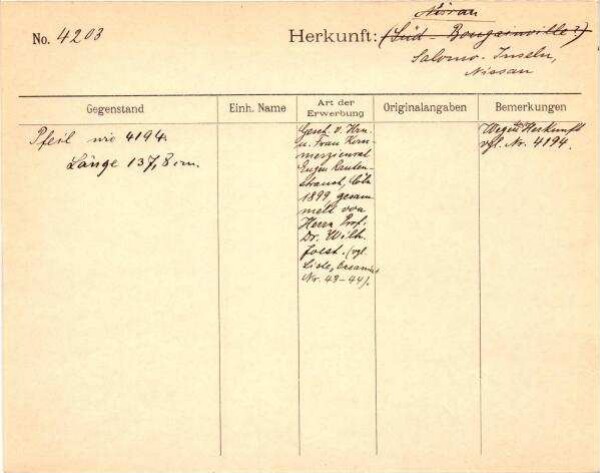 Nissan
No. 4203
Herkunft: (Süd-Bougainville?)
Salomo-Inseln,
Nissan
Gegenstand
Einh. Name
Art der Erwerbung
Originalangaben
Bemerkungen
Pfeil wie 4194.
Länge 137,8 cm.
Gesch. v. Hrn.
u. Frau Kom-
merzienrat
Eugen Rauten-
strauch, Cöln
1899, gesam-
melt von
Herrn Prof.
Dr. Wilh.
Joest. (vgl.
Liste, Oceanien
Nr. 43-44).
Wegen Herkunft
vgl. Nr. 4194.